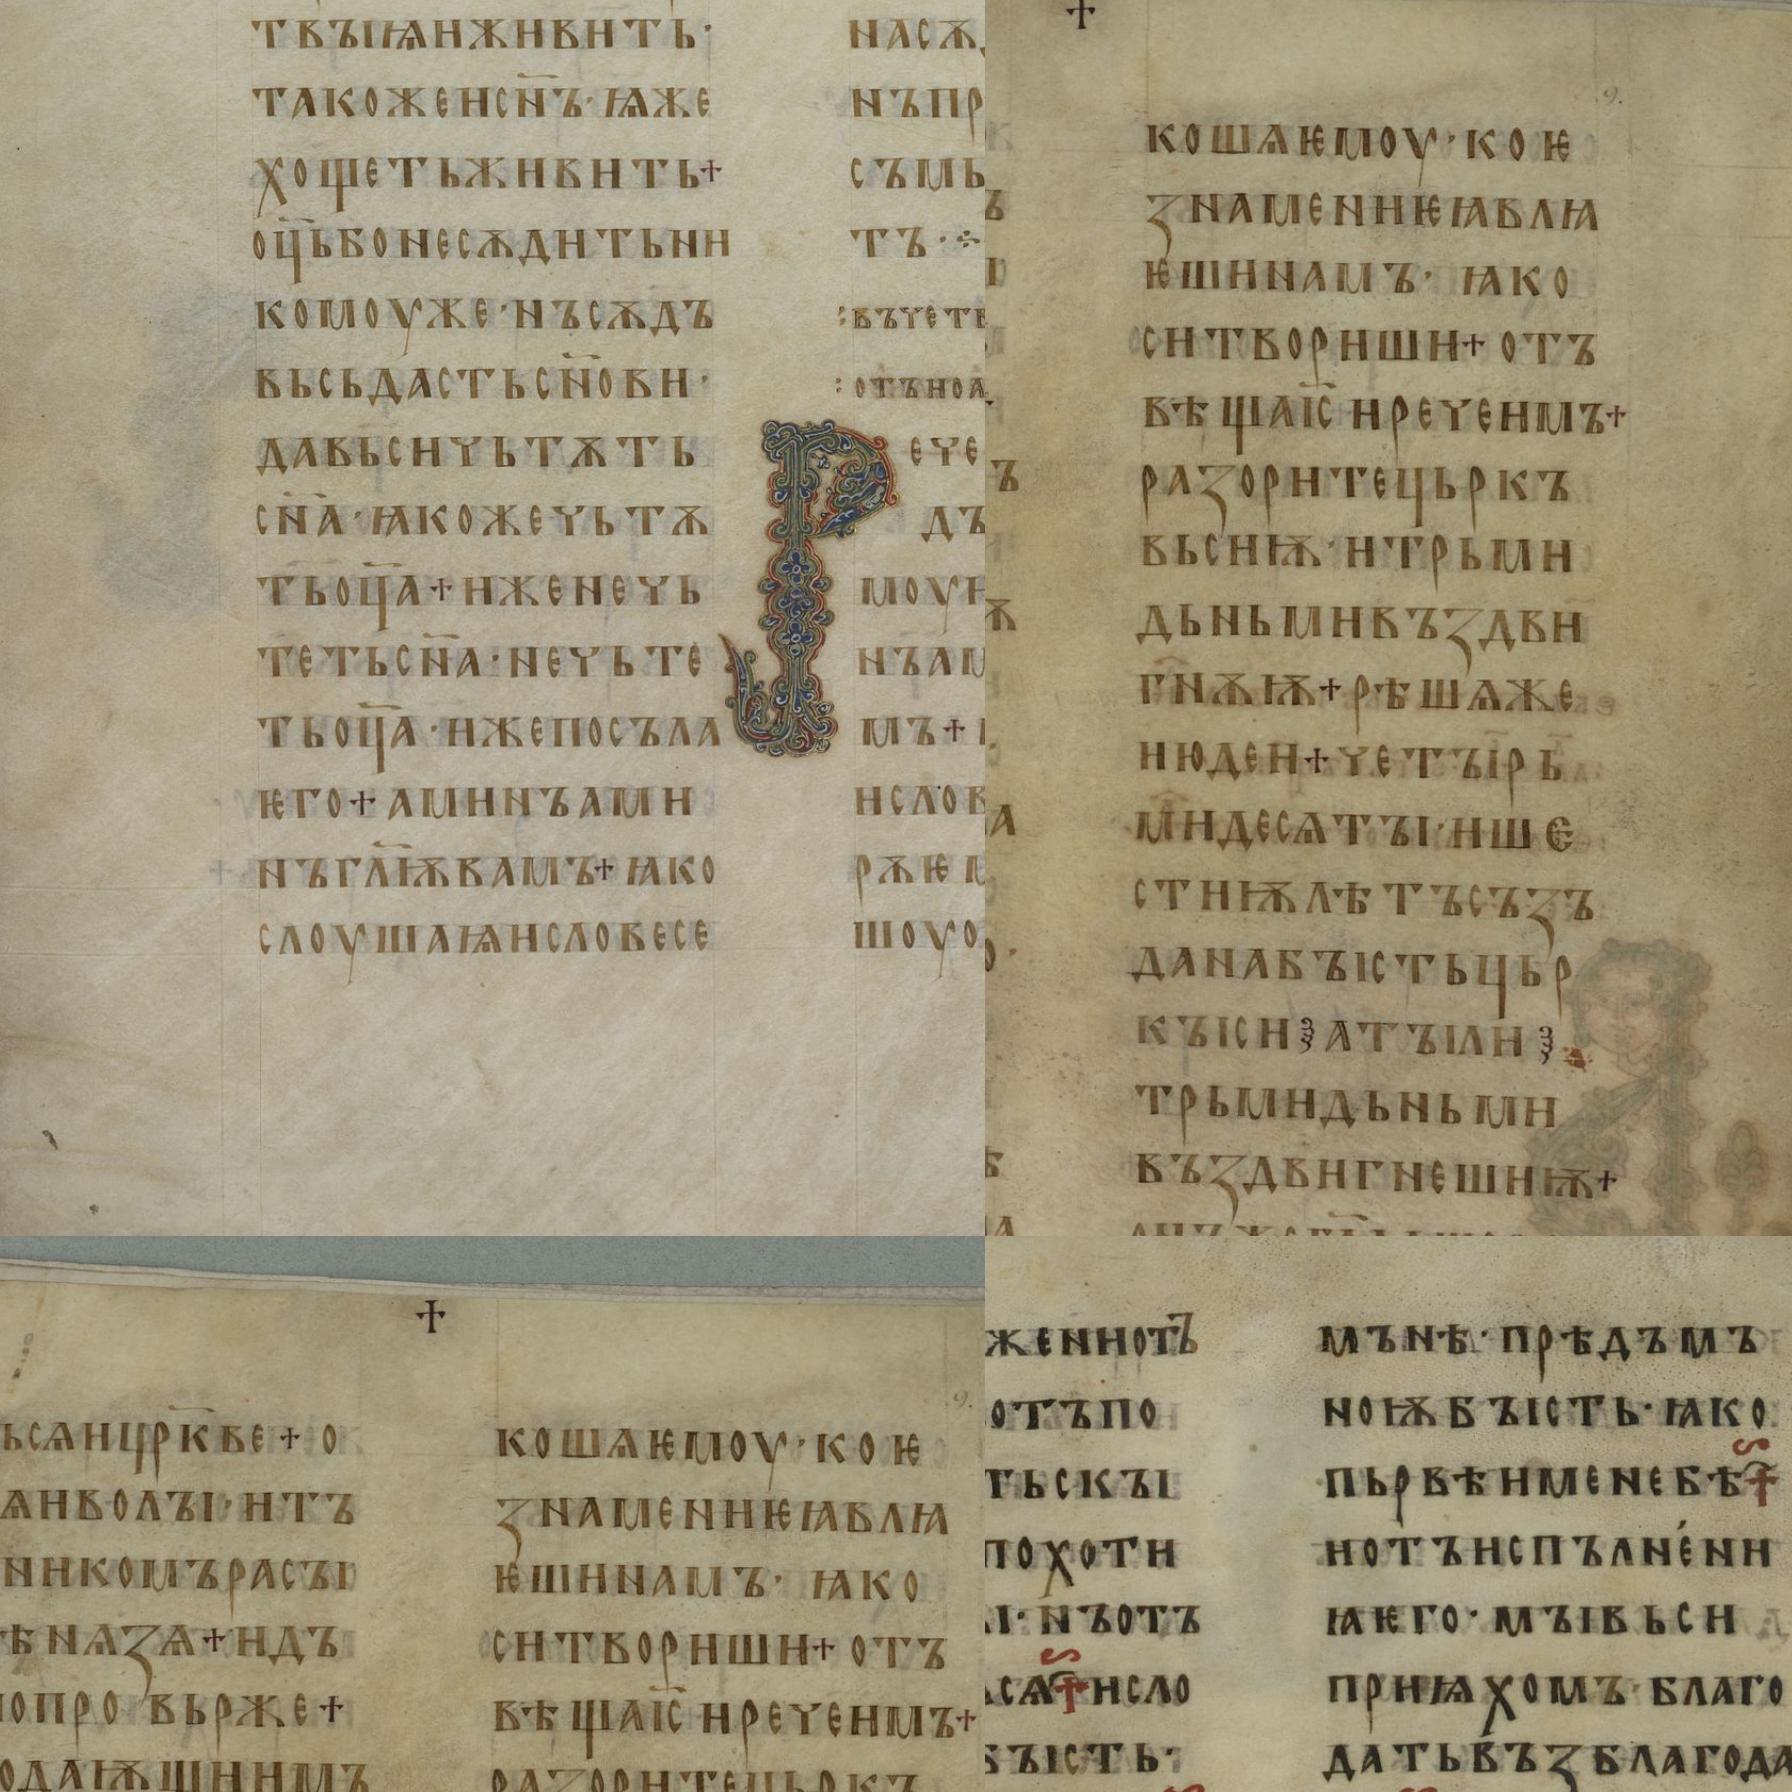 твꙑꙗиживить·
такожеисн҃ъ·ꙗже
хощетьживить+
оц҃ьбонесѫдитьни
комоуже·нъсѫдъ
вьсьдастьсн҃ови·
давьсичьтѫть
сн҃а·ꙗкожечьтѫ
тьоц҃а+иженечь
тетьсн҃а·нечьте
тьоц҃а·ижепосъла
ѥго+аминъами
нъгл҃ѭвамъ+ꙗко
слоушаꙗисловесе
насѫ
нъпр
съмь
тъ·÷
:въчетв
:отъиоа
Рече
дъ
моуи
нъам
мъ+
исков
рѫѥ
шоуо
кошаѥмоу·коѥ
знамениѥꙗвлꙗ
ѥшинамъ·ꙗко
ситвориши+отъ
вѣщаі҃сиречеимъ+
разоритецьркъ
вьсиѭ·итрьми
дьньмивъздви
гн҃ѫѭ+рѣшѧже
июдеи+четꙑрь
мидесѧтꙑ·ише
стиѭлѣтъсъзъ
данабꙑстьцьр
кꙑсиꙁатꙑли
трьмидьньми
въздвигнешиѭ+
ьсѧицр҃кве+о
ѧиволꙑ·итъ
никомърасꙑ
ѣнѧзѧ+идъ
опровьрже+
одаѭщиимъ
кошаѥмоу·коѥ
знамениѥꙗвлꙗ
ѥшинамъ·ꙗко
ситвориши+отъ
вѣщаі҃сиречеимъ+
разоритецьркъ
жениотъ
отъпо
тьскꙑ
похоти
і·нъотъ
сѧ+исло
бꙑсть·
мънѣ·прѣдъмъ
ноѭбꙑсть·ꙗко
пьрвѣименебѣ+
иотъисплъне́ни
ꙗѥго·мꙑвьси
приꙗхомъ·благо
датьвъзблагода